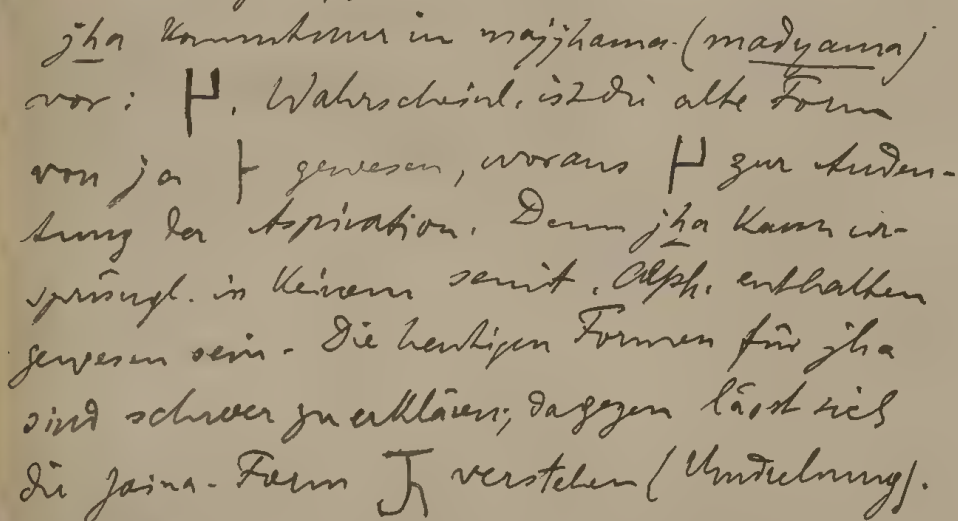 jha kommt nur in majjhama (madyama)
vor: 𑀛. Wahrscheinl. ist die alte Form
von ja ⊦ gewesen, woraus 𑀛 zur Andeu-
tung der Aspiration. Denn jha kann ur-
sprüngl. in keinem semit. Alph. enthalten
gewesen sein. Die heutigen Formen für jha
sind schwer zu erklären; dagegen lässt sich
die Jaina-Form verstehen (Umdrehung).